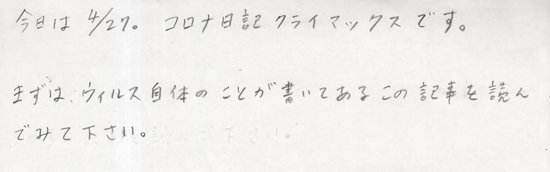 今日は 4/27。 コロナ日記クライマックスです。
まずは、ウィルス自体のことが書いてあるこの記事を読ん
でみて下さい。